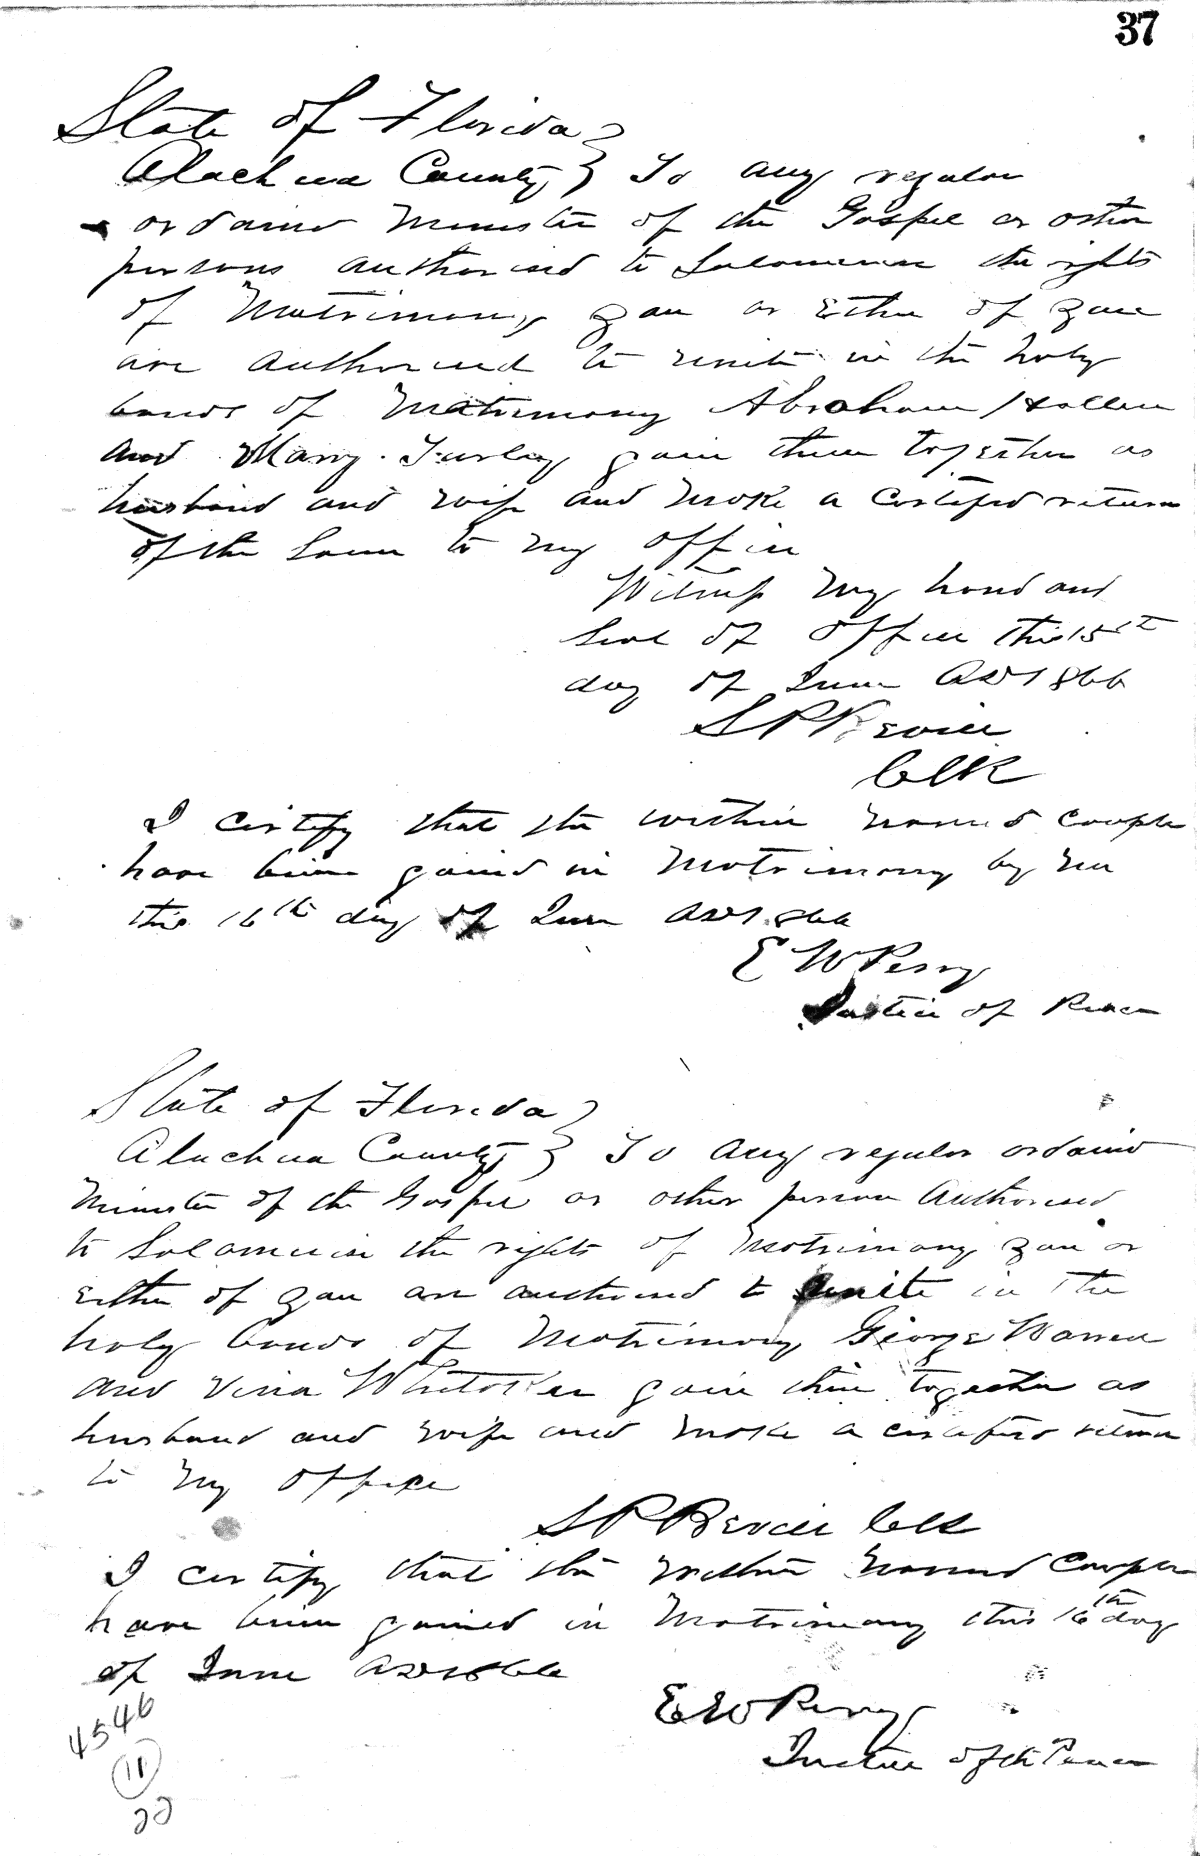 37
State of Florida }
Alachua County } To any regular
ordaind Minister of the Gospel or other
persons authorised to Solomnise the rights
of Matrimony you or Either of you
are authorised to unite in the holy
bonds of Matrimony Abraham
and Mary join them together as
husband and wife and make a certifid return
of the Same to my office
Witness my hand and
Seal of office this 15th
day of June AD 1866
S P
Clk
I certify that the within named couple
have been joined in Matrimony by me
this 16th day of June AD 1866
E W Perry
Justice of Peace
State of Florida }
Alachua County } To any regular ordaind
Minister of the Gospel or other person Authorised
to Solomnise the rights of Matrimony you or
Either of you are authorised to unite in the
holy bonds of Matrimony George Warren
and Vina join them together as
husband and wife and make a certifid return
to my office
S P Clk
I certify that the within named Couple
have been joined in Matrimony this 16th day
of June AD 1866
E W Perry
Justice of the Peace
4546
11
22